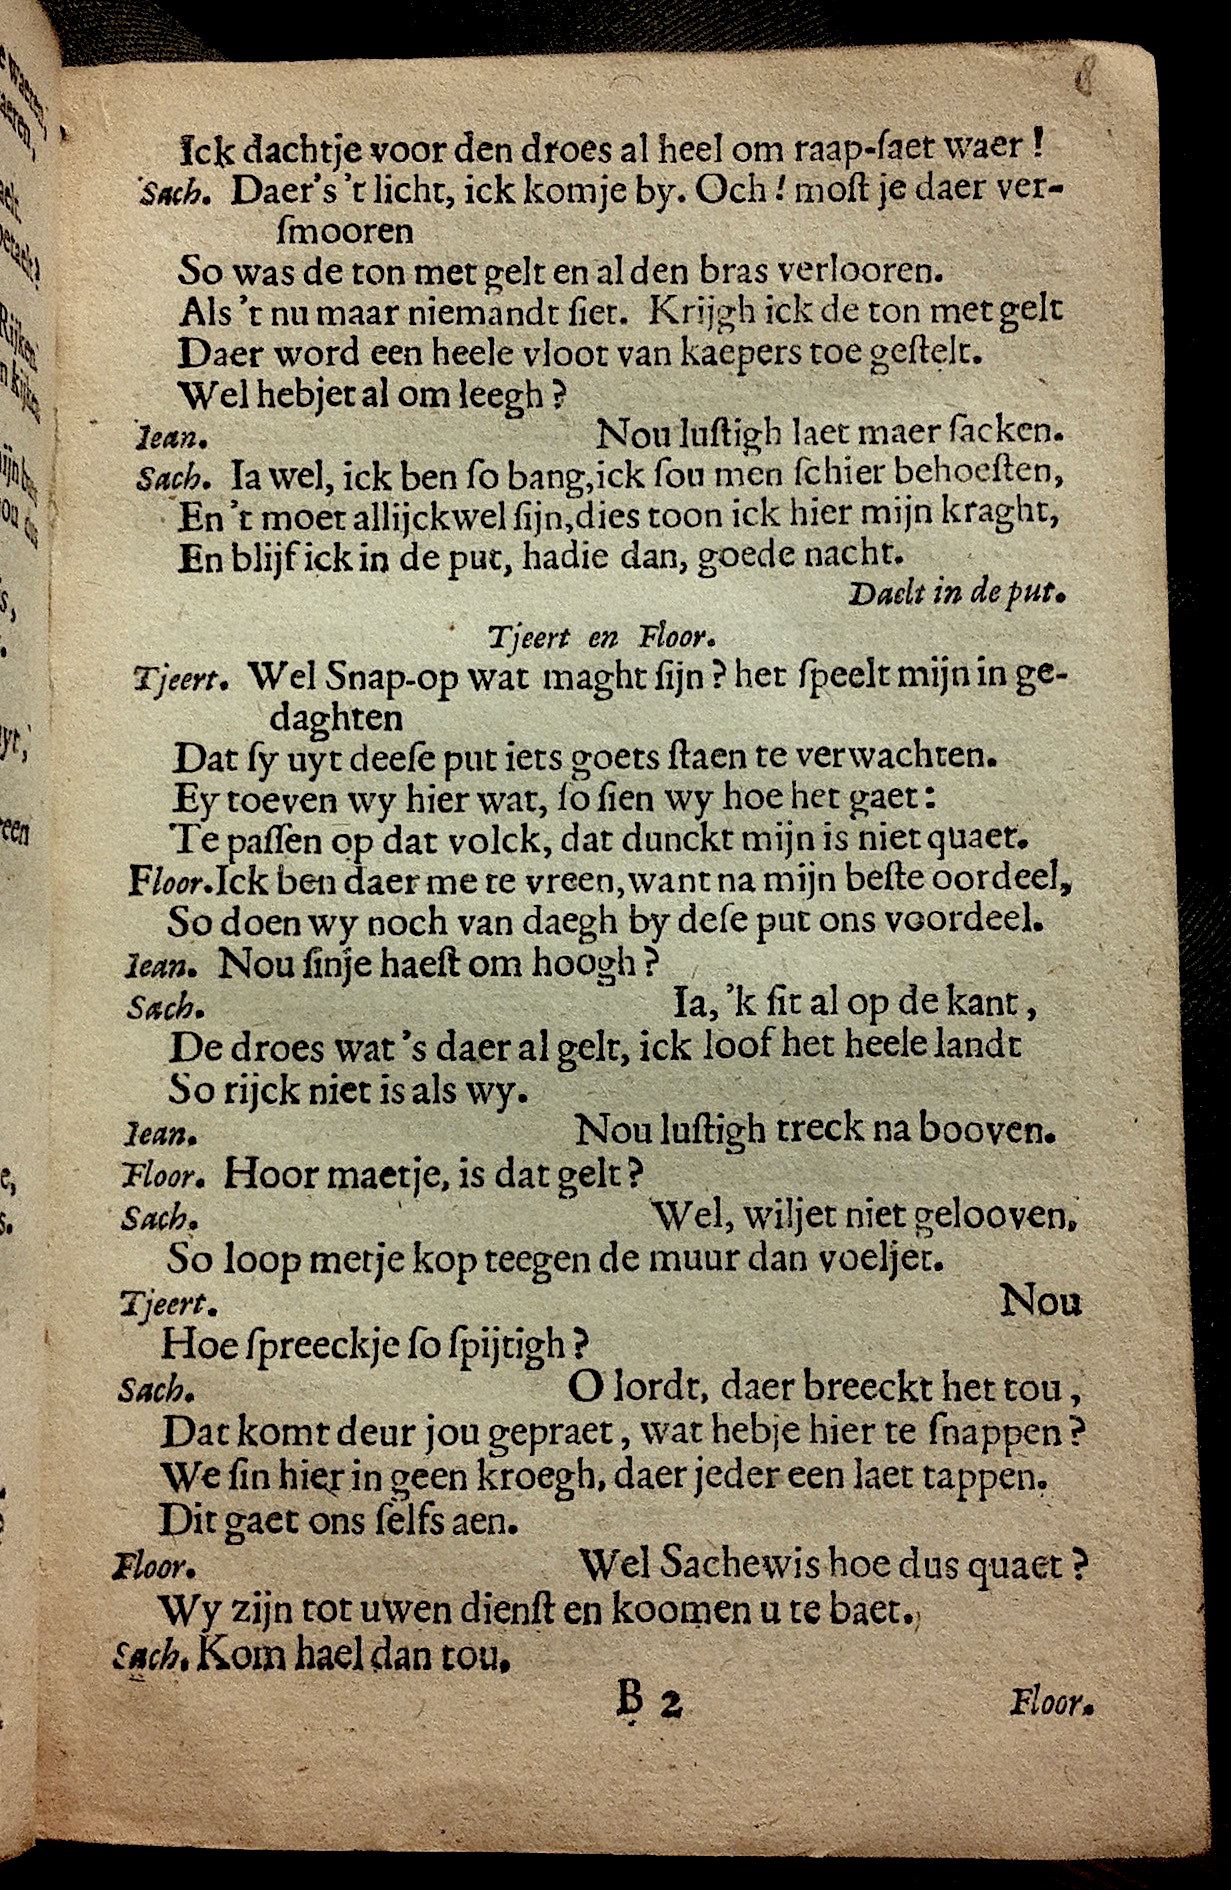 8
Ick dachtje voor den droes al heel om raap-ſaet waer!
Sach. Daer's 't licht, ick komje by. Och! moſt je daer ver-
ſmooren
So was de ton met gelt en al den bras verlooren.
Als 't nu maar niemandt ſiet. Krijgh ick de ton met gelt
Daer word een heele vloot van kaepers toe geſtelt.
Wel hebjet al om leegh?
Iean. Nou luſtigh laet maer ſacken.
Sach. Ia wel, ick ben ſo bang, ick ſou men ſchier behoeſten,
En 't moet allijckwel ſijn, dies toon ick hier mijn kraght,
En blijf ick in de put, hadie dan, goede nacht.
Daelt in de put.
Tjeert en Floor.
Tjeert. Wel Snap-op wat maght ſijn? het ſpeelt mijn in ge-
daghten
Dat ſy uyt deeſe put iets goets ſtaen te verwachten.
Ey toeven wy hier wat, ſo ſien wy hoe het gaet:
Te paſſen op dat volck, dat dunckt mijn is niet quaet.
Floor. Ick ben daer me te vreen, want na mijn beſte oordeel,
So doen wy noch van daegh by deſe put ons voordeel.
Iean. Nou ſinje haeſt om hoogh?
Sach. Ia, 'k ſit al op de kant,
De droes wat 's daer al gelt, ick loof het heele landt
So rijck niet is als wy.
Iean. Nou luſtigh treck na booven.
Floor. Hoor maetje, is dat gelt?
Sach. Wel, wiljet niet gelooven,
So loop metje kop teegen de muur dan voeljet.
Tjeert. Nou
Hoe ſpreeckje ſo ſpijtigh?
Sach. O lordt, daer breeckt het tou,
Dat komt deur jou gepraet, wat hebje hier te ſnappen?
We ſin hier in geen kroegh, daer jeder een laet tappen.
Dit gaet ons ſelfs aen.
Floor. Wel Sachewis hoe dus quaet?
Wy zijn tot uwen dienſt en koomen u te baet.
Sach. Kom hael dan tou.
B 2 Floor.